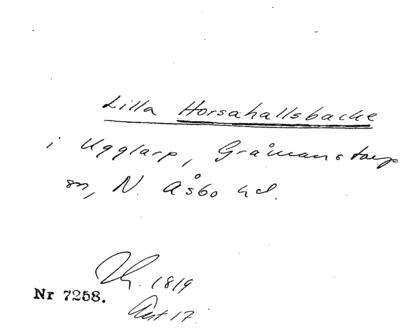 Lilla Horsahallsbacke
i Ugglarp, Gråmanstorps
sn, N. Åsbo hd.
1819
Nr 7258.
Akt 17.